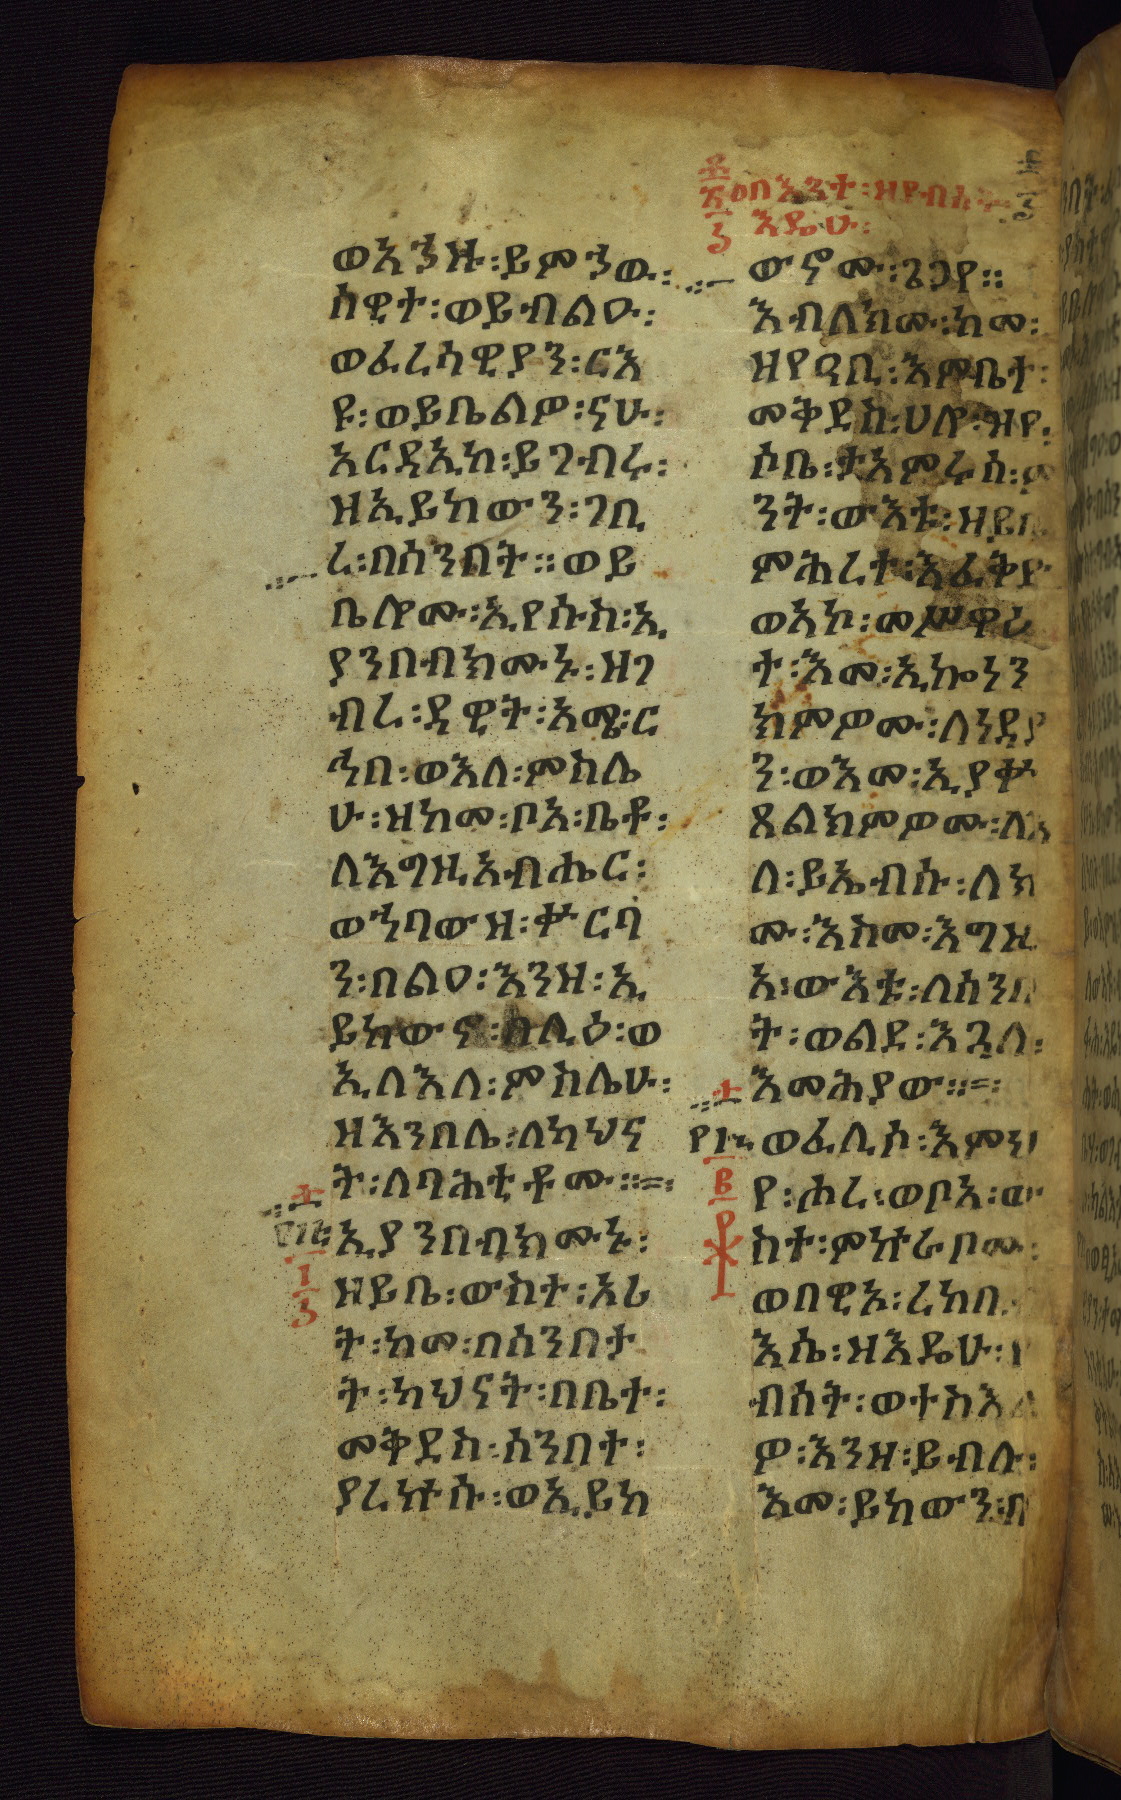 በእንተ፡ዘየብሰት፡
እዴሁ፡
ወአኀዙ፡ይምኀው፡
ሰዊተ፡ወይብልዑ፡
ወፈሪሳዊያን፡ርእ
ዩ፡ወይቤልዎ፡ናሁ፡
አርዳኢከ፡ይገብሩ፡
ዘኢይከውን፡ገቢ
ረ፡በሰንበት። ወይ
ቤሎሙ፡ኢየሱስ፡ኢ
ያንበብክሙኑ፡ዘገ
ብረ፡ዳዊት፡አሜ፡ር
ኅበ፡ወእለ፡ምስሌ
ሁ፡ዘከመ፡ቦአ፡ቤቶ፡
ለእግዚአብሔር፡
ወኅባውዘ፡ቍርባ
ን፡በልዐ፡እንዘ፡ኢ
ይከውኖ፡በሊዕ፡ወ
ኢለእለ፡ምስሌሁ፡
ዘእንበለ፡ለካህና
ት፡ለባሕቲቶሙ።
ኢያንበብክሙኑ፡
ዘይቤ፡ውስተ፡አሪ
ት፡ከመ፡በሰንበታ
ት፡ካህናት፡በቤተ፡
መቅደስ፡ሰንበተ፡
ያረኵሱ፡ወኢይከ
ውኖሙ፡ጌጋየ።
እብለክሙ፡ከመ፡
ዘየዐቢ፡እምቤተ፡
መቅደስ፡ሀሎ፡ዝየ፡
ሶበ፡ታአምሩሰ፡ም
ንት፡ውእቱ፡ዘይቤ
ምሕረተ፡እፈቅድ
ወአኮ፡መሥዋዕ
ተ፡እመ፡ኢኰነን
ክምዎሙ፡ለነዳያ
ን፡ወእመ፡ኢያቍ
ጸልክምዎሙ፡ለእ
ለ፡ይኤብሱ፡ለክ
ሙ፡እስመ፡እግዚ
አ፡ውእቱ፡ለሰንበ
ት፡ወልደ፡እጓለ፡
እመሕያው።
ወፈሊሶ፡እምህ
የ፡ሖረ፡ወቦአ፡ው
ስተ፡ምኵራቦሙ፡
ወበዊኦ፡ረከበ፡
እሴ፡ዘእዴሁ፡የ
ብሰት፡ወተስእል
ዎ፡እንዘ፡ይብሉ፡
እመ፡ይከውን፡በ